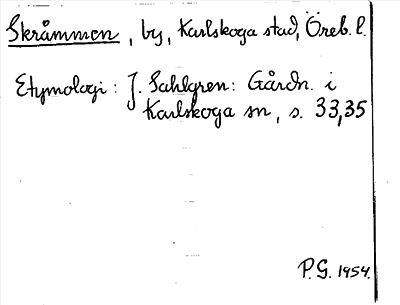 Skråmmen, by, Karlskoga stad, Öreb. l.
Etymologi: J. Sahlgren: Gårdn. i
Karlskoga sn, s. 33,35
P.G. 1954.